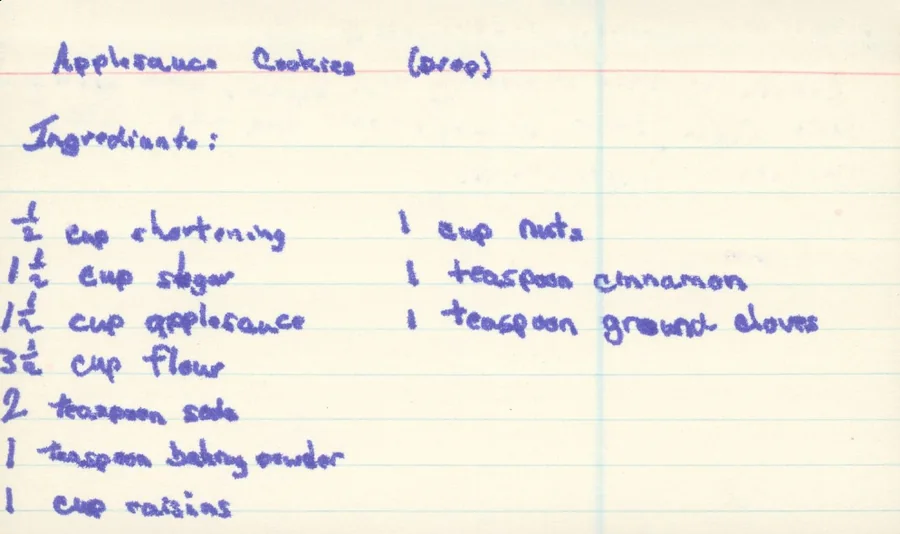 Applesauce Cookies (Drop)
Ingrediants:
1/2 cup shortening
1 1/2 cup sugar
1 1/2 cup applesauce
3 1/2 cup flour
2 teaspoon soda
1 teaspoon baking powder
1 cup raisins
1 cup nuts
1 teaspoon cinnamon
1 teaspoon ground cloves